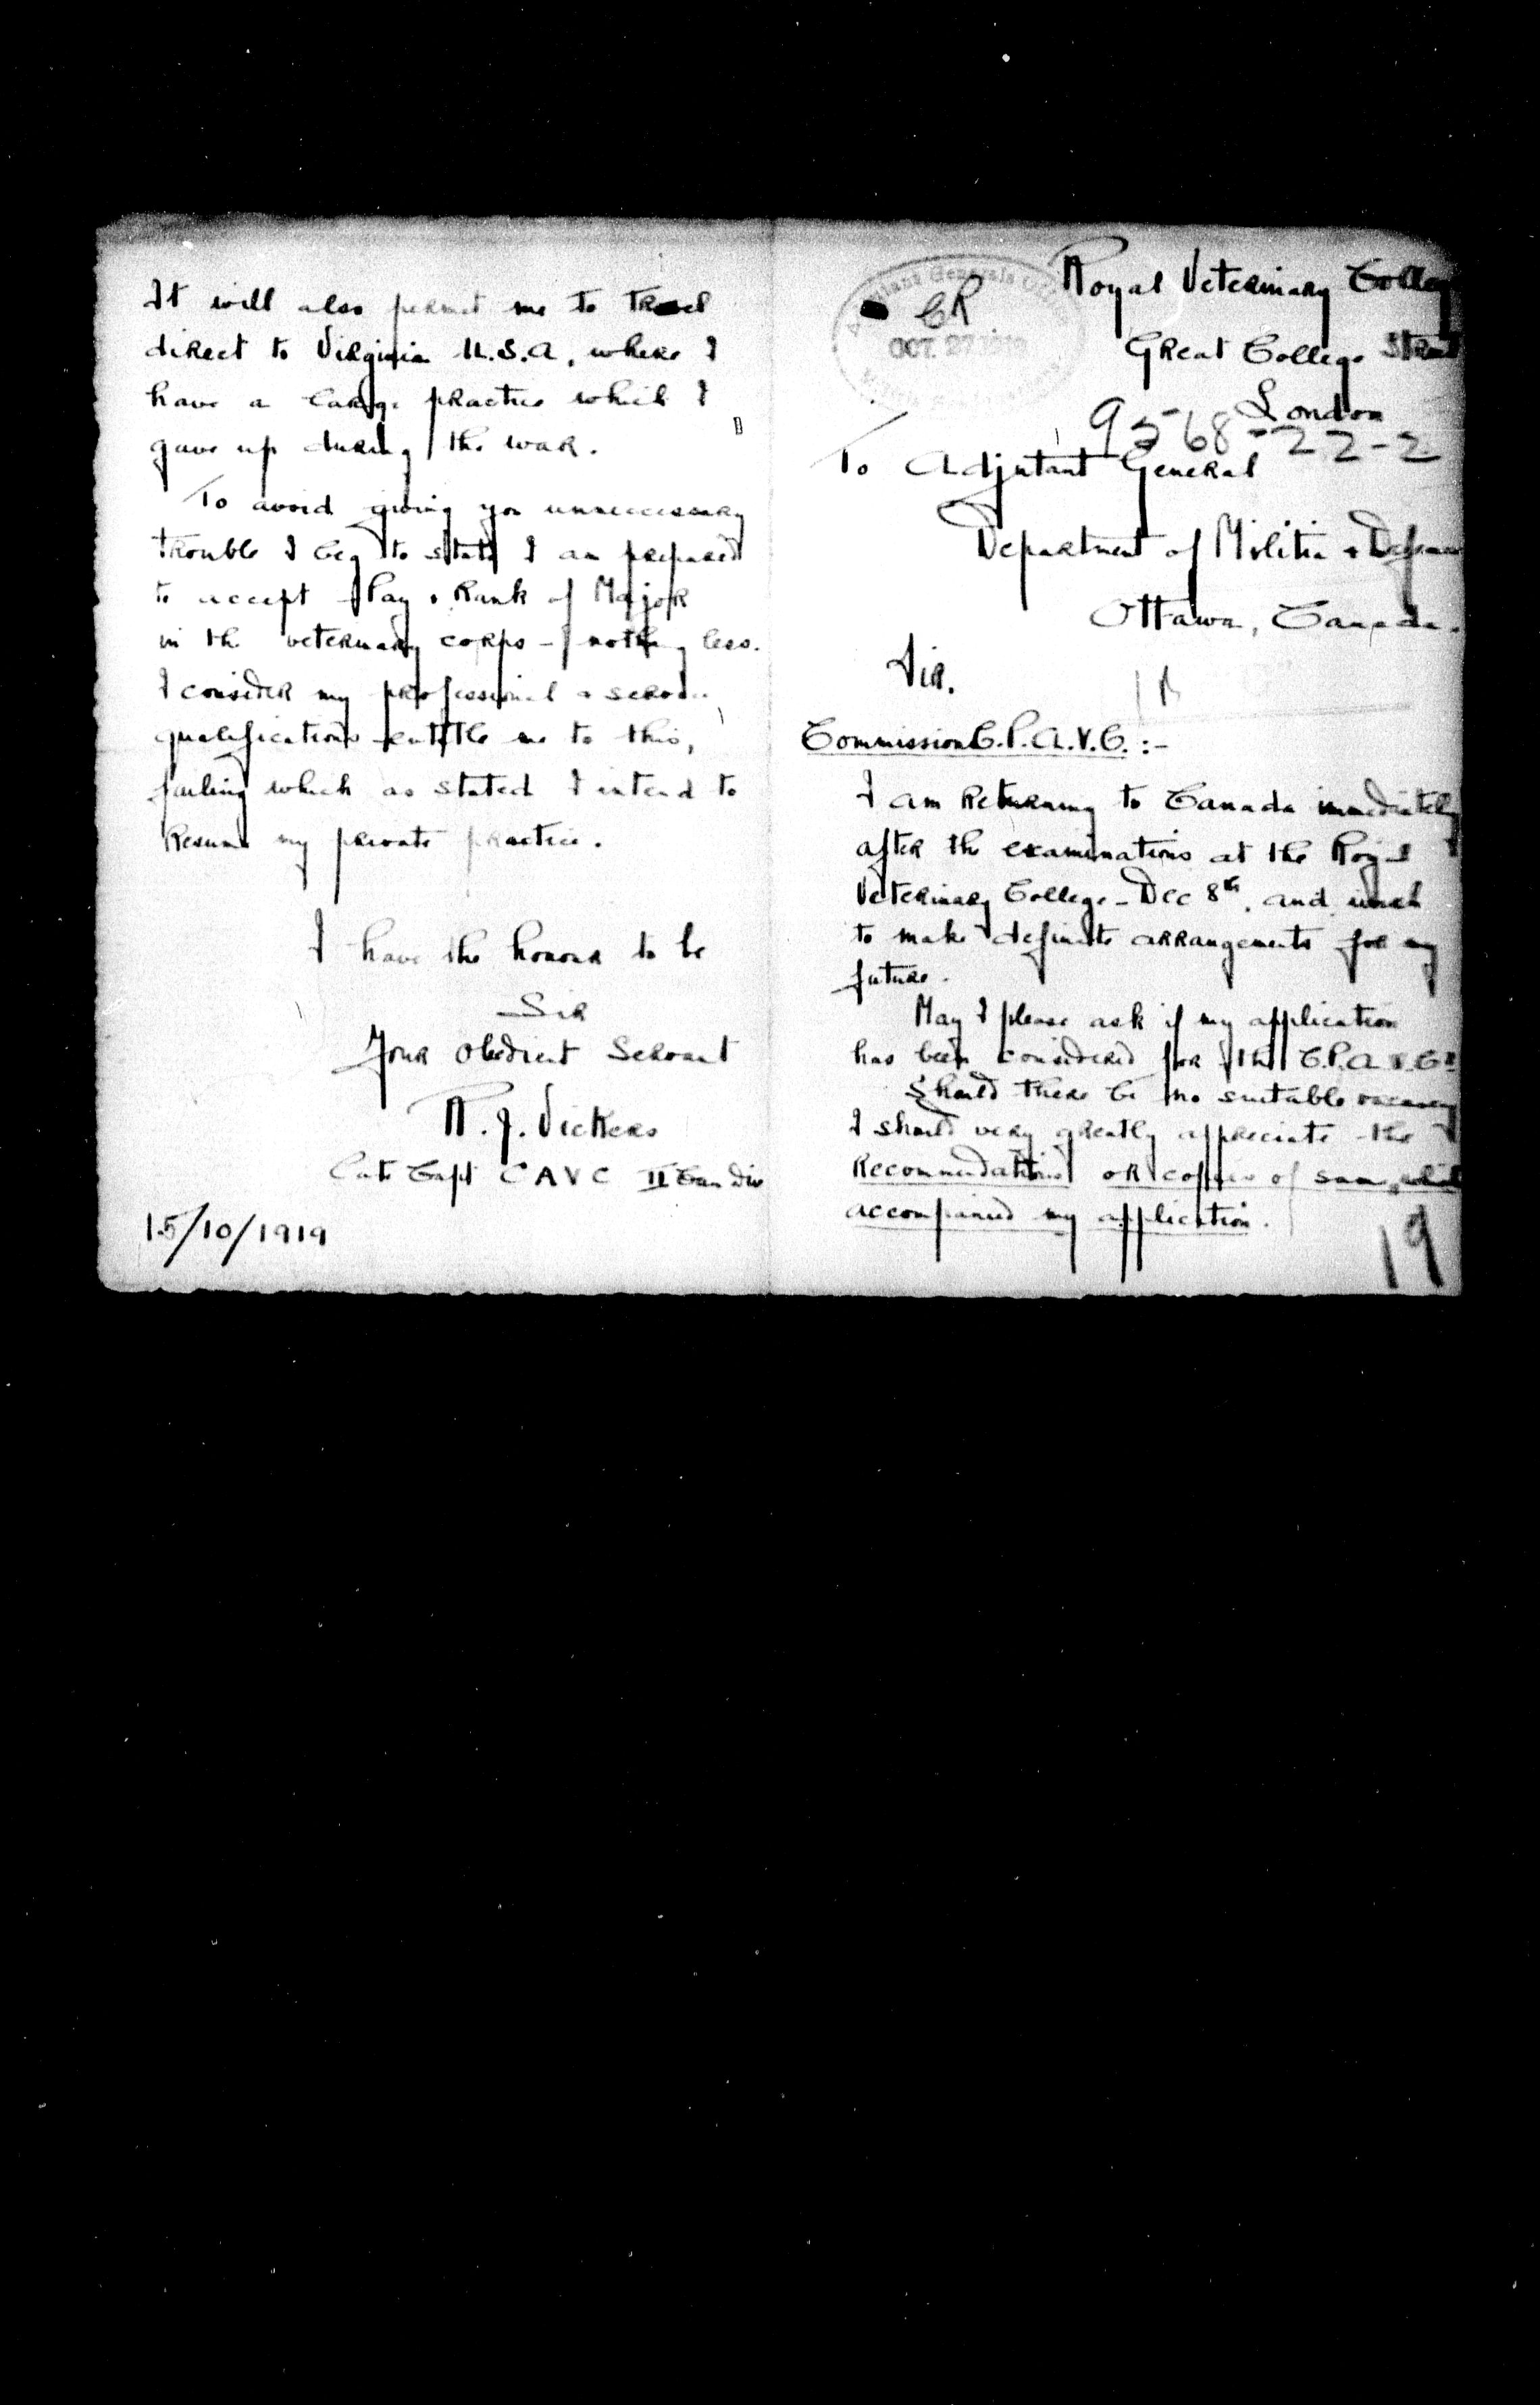 Royal Veterinary College
Great College Street
London
9568-22-2
To Adjutant General
Department of Militia & Defence
Ottawa, Canada.
Adjutant Generals Office
CR
OCT. 27 1919
Sir.
Commission C.P.A.V.C. :-
I am Returning to Canada immediately
after the examinations at the Royal
Veterinary College - Dec 8th. and wish
to make definite arrangements for my
future.
May I please ask if my application
has been considered for the C.P.A.V.C.
Should there be no suitable vacancy
I should very greatly appreciate the
Recommendations or copies of same, which
accompanied my application.
19
It will also permit me to travel
direct to Virginia U.S.A, where I
have a large practice which I
gave up during the war.
To avoid giving you unneccessary
trouble I beg to state I am prepared
to accept Pay & Rank of Major
in the veterinary corps - nothing less.
I consider my professional & service
qualifications entitle me to this,
failing which as stated I intend to
Resume my private practice.
I have the honour to be
Sir
Your Obedient Servant
R. J. Vickers
Late Capt C A V C II Can Div
15/10/1919